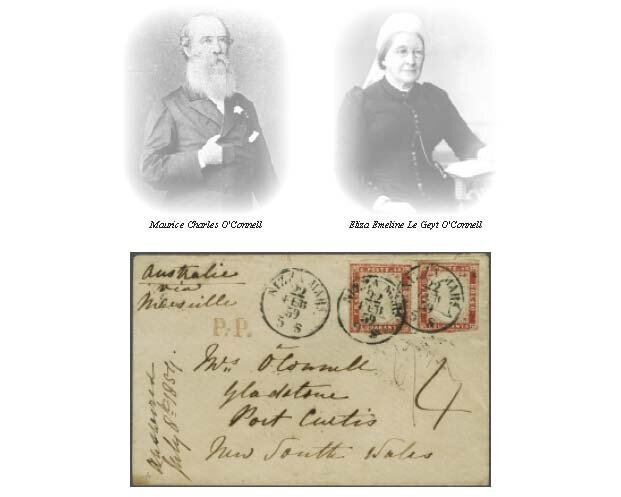 Maurice Charles O'Connell
Eliza Emeline Le Geyt O'Connell
Australie
via
Marseille
P.P.
NIZZA MARE
22
FEB
59
5 S
Mrs O'Connell
Gladstone
Port Curtis
New South Wales
4
Answered
July 8th 1859.